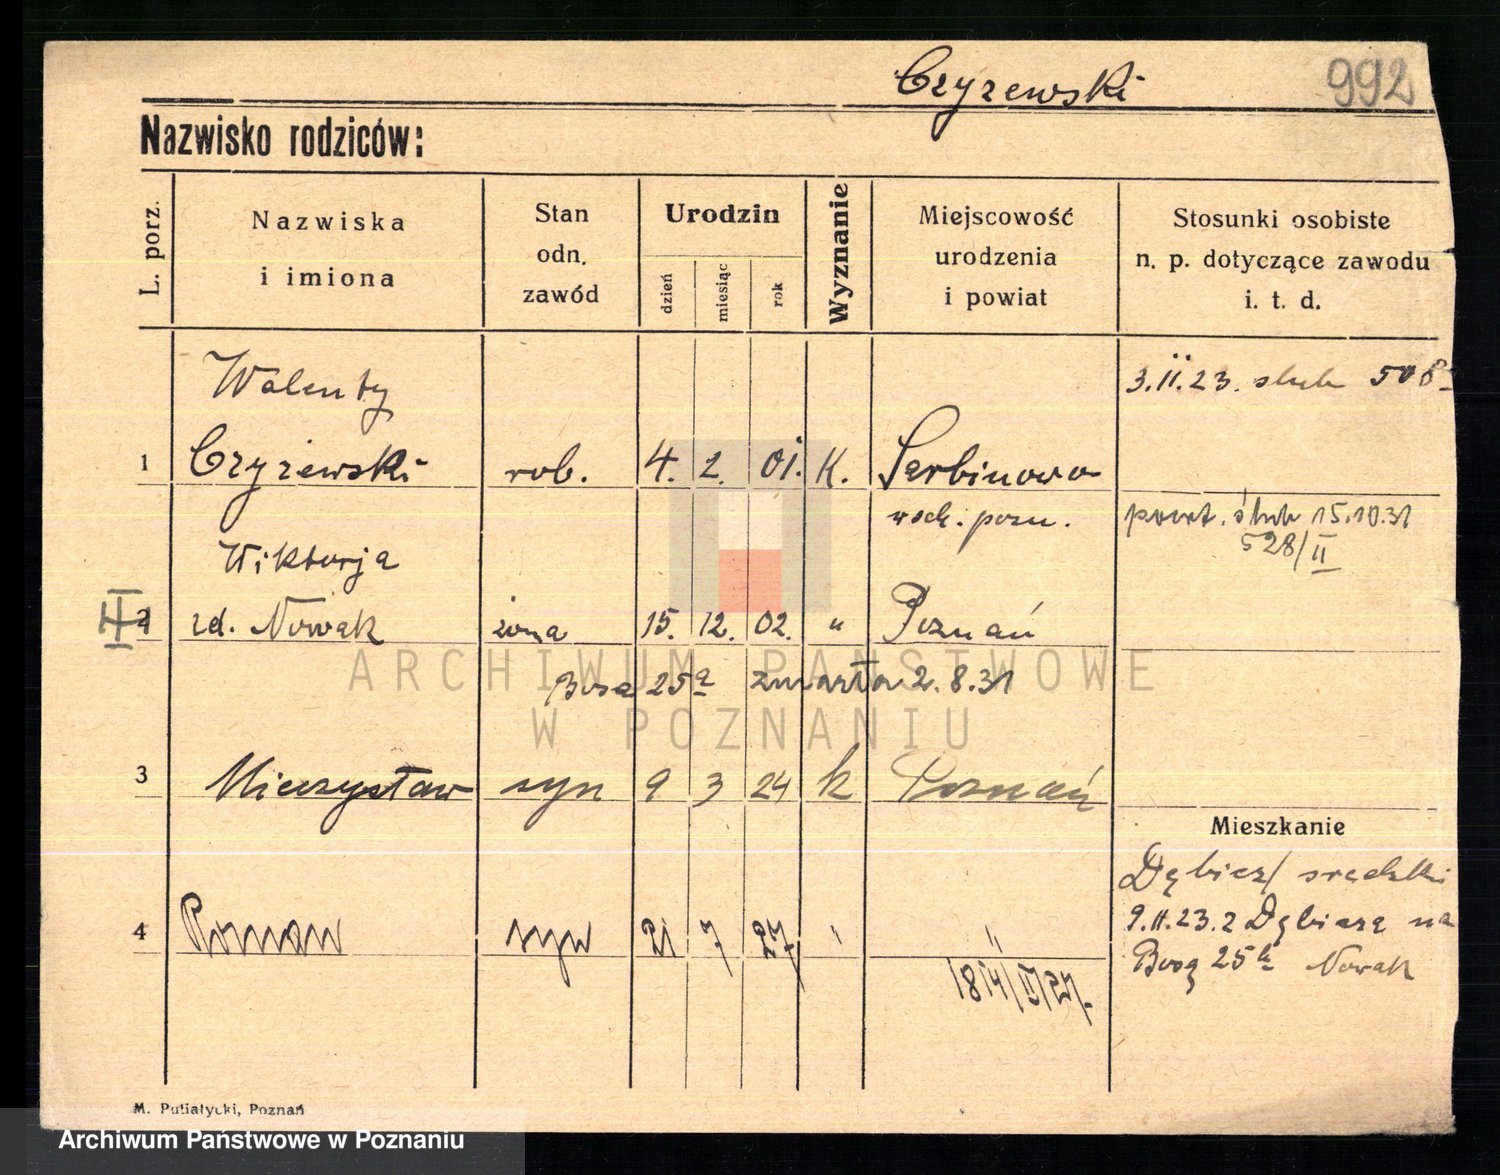 Czyzewski 992
Nazwisko rodziców:
L. porz.
Nazwiska
i imiona
Stan
odn.
zawód
Urodzin
dzień
miesiąc
rok
Wyznanie
Miejscowość
urodzenia
i powiat
Stosunki osobiste
n. p. dotyczące zawodu
i. t. d.
Walenty 3.II.23. ślub 508
1 Czyżewski rob. 4. 2. 01. K. Sarbinowo
wsch. pozn. powt. ślub 15.10.31
528/II
Wiktorja
II 2 zd. Nowak żona 15. 12. 02. " Poznań
Bosa 25a zmarła 2.8.31
3 Mieczysław syn 9 3 24 k Poznań
Mieszkanie
Dębicz/ średzki
4 Roman syn 21 7 27 " "
9.II.23. z Dębicza na
Bosą 25a Nowak
M. Putiatycki, Poznań
ARCHIWUM PAŃSTWOWE
W POZNANIU
Archiwum Państwowe w Poznaniu